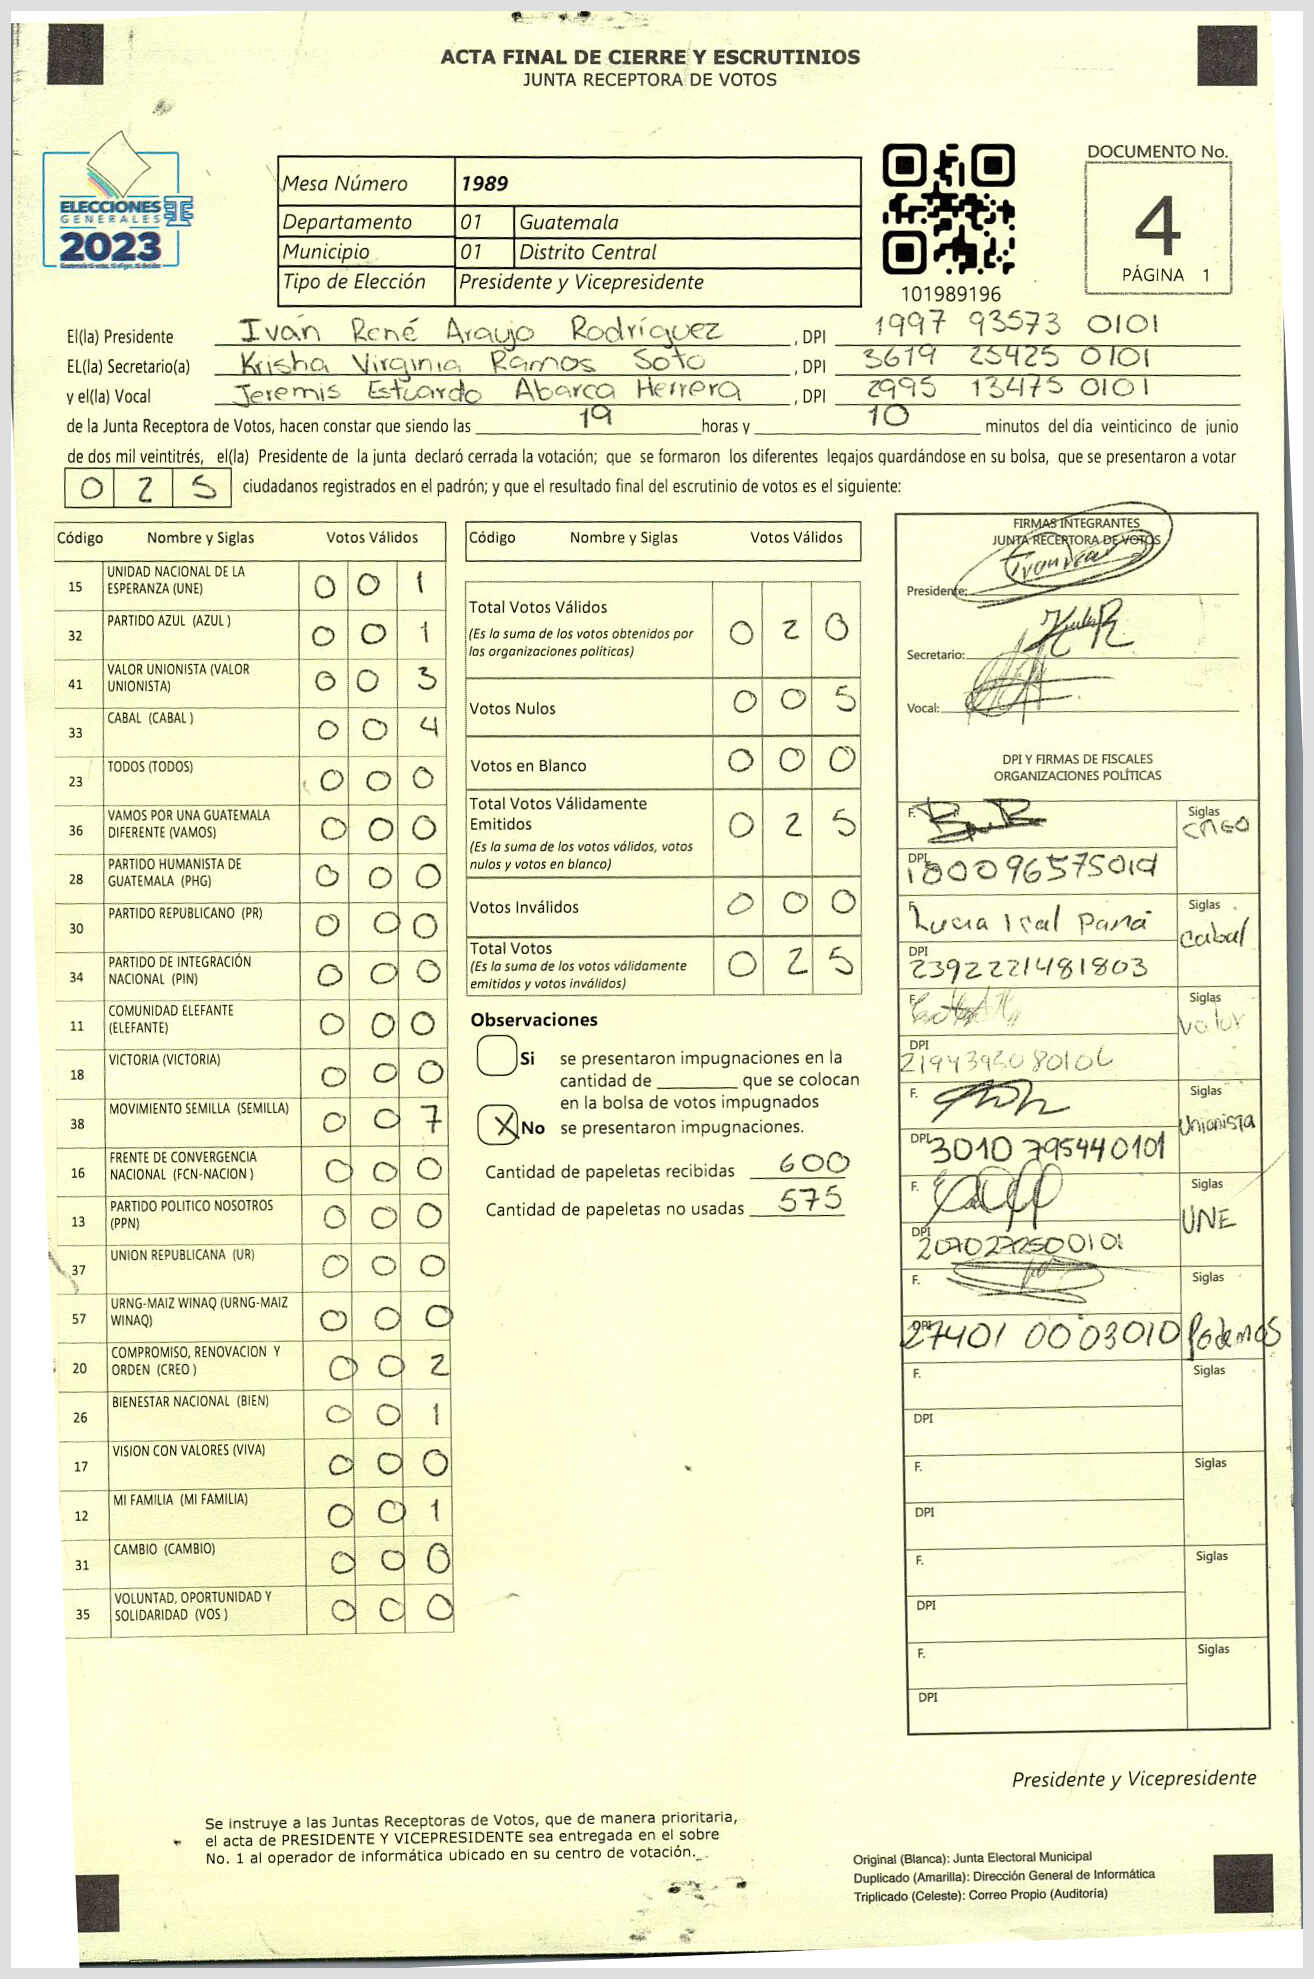 ACTA FINAL DE CIERRE Y ESCRUTINIOS
JUNTA RECEPTORA DE VOTOS
ELECCIONES
GENERALES
2023
Mesa Número 1989
Departamento 01 Guatemala
Municipio 01 Distrito Central
Tipo de Elección Presidente y Vicepresidente
101989196
DOCUMENTO No.
4
PÁGINA 1
El(la) Presidente Iván René Araujo Rodríguez , DPI 1997 93573 0101
EL(la) Secretario(a) Krisha Virginia Ramos Soto , DPI 3619 25425 0101
y el(la) Vocal Jeremis Estuardo Abarca Herrera , DPI 2995 13475 0101
de la Junta Receptora de Votos, hacen constar que siendo las 19 horas y 10 minutos del día veinticinco de junio
de dos mil veintitrés, el(la) Presidente de la junta declaró cerrada la votación; que se formaron los diferentes legajos guardándose en su bolsa, que se presentaron a votar
0 2 5 ciudadanos registrados en el padrón; y que el resultado final del escrutinio de votos es el siguiente:
Código Nombre y Siglas Votos Válidos
15 UNIDAD NACIONAL DE LA ESPERANZA (UNE) 0 0 1
32 PARTIDO AZUL (AZUL ) 0 0 1
41 VALOR UNIONISTA (VALOR UNIONISTA) 0 0 3
33 CABAL (CABAL ) 0 0 4
23 TODOS (TODOS) 0 0 0
36 VAMOS POR UNA GUATEMALA DIFERENTE (VAMOS) 0 0 0
28 PARTIDO HUMANISTA DE GUATEMALA (PHG) 0 0 0
30 PARTIDO REPUBLICANO (PR) 0 0 0
34 PARTIDO DE INTEGRACIÓN NACIONAL (PIN) 0 0 0
11 COMUNIDAD ELEFANTE (ELEFANTE) 0 0 0
18 VICTORIA (VICTORIA) 0 0 0
38 MOVIMIENTO SEMILLA (SEMILLA) 0 0 7
16 FRENTE DE CONVERGENCIA NACIONAL (FCN-NACION ) 0 0 0
13 PARTIDO POLITICO NOSOTROS (PPN) 0 0 0
37 UNION REPUBLICANA (UR) 0 0 0
57 URNG-MAIZ WINAQ (URNG-MAIZ WINAQ) 0 0 0
20 COMPROMISO, RENOVACION Y ORDEN (CREO ) 0 0 2
26 BIENESTAR NACIONAL (BIEN) 0 0 1
17 VISION CON VALORES (VIVA) 0 0 0
12 MI FAMILIA (MI FAMILIA) 0 0 1
31 CAMBIO (CAMBIO) 0 0 0
35 VOLUNTAD, OPORTUNIDAD Y SOLIDARIDAD (VOS ) 0 0 0
Código Nombre y Siglas Votos Válidos
Total Votos Válidos 0 2 0
(Es la suma de los votos obtenidos por
las organizaciones políticas)
Votos Nulos 0 0 5
Votos en Blanco 0 0 0
Total Votos Válidamente
Emitidos 0 2 5
(Es la suma de los votos válidos, votos
nulos y votos en blanco)
Votos Inválidos 0 0 0
Total Votos 0 2 5
(Es la suma de los votos válidamente
emitidos y votos inválidos)
Observaciones
Si se presentaron impugnaciones en la
cantidad de ________ que se colocan
en la bolsa de votos impugnados
X No se presentaron impugnaciones.
Cantidad de papeletas recibidas 600
Cantidad de papeletas no usadas 575
FIRMAS INTEGRANTES
JUNTA RECEPTORA DE VOTOS
Presidente:
Secretario:
Vocal:
DPI Y FIRMAS DE FISCALES
ORGANIZACIONES POLÍTICAS
F. Siglas
DPI
F. Lucia Ixal Paná Siglas Cabal
DPI 2392221481803
F. Siglas Valor
DPI
F. Siglas Unionista
DPI 3010 795440101
F. Siglas UNE
DPI
F. Siglas Podemos
DPI 27401 0003010
F. Siglas
DPI
F. Siglas
DPI
F. Siglas
DPI
F. Siglas
DPI
Presidente y Vicepresidente
Se instruye a las Juntas Receptoras de Votos, que de manera prioritaria,
el acta de PRESIDENTE Y VICEPRESIDENTE sea entregada en el sobre
No. 1 al operador de informática ubicado en su centro de votación.
Original (Blanca): Junta Electoral Municipal
Duplicado (Amarilla): Dirección General de Informática
Triplicado (Celeste): Correo Propio (Auditoría)